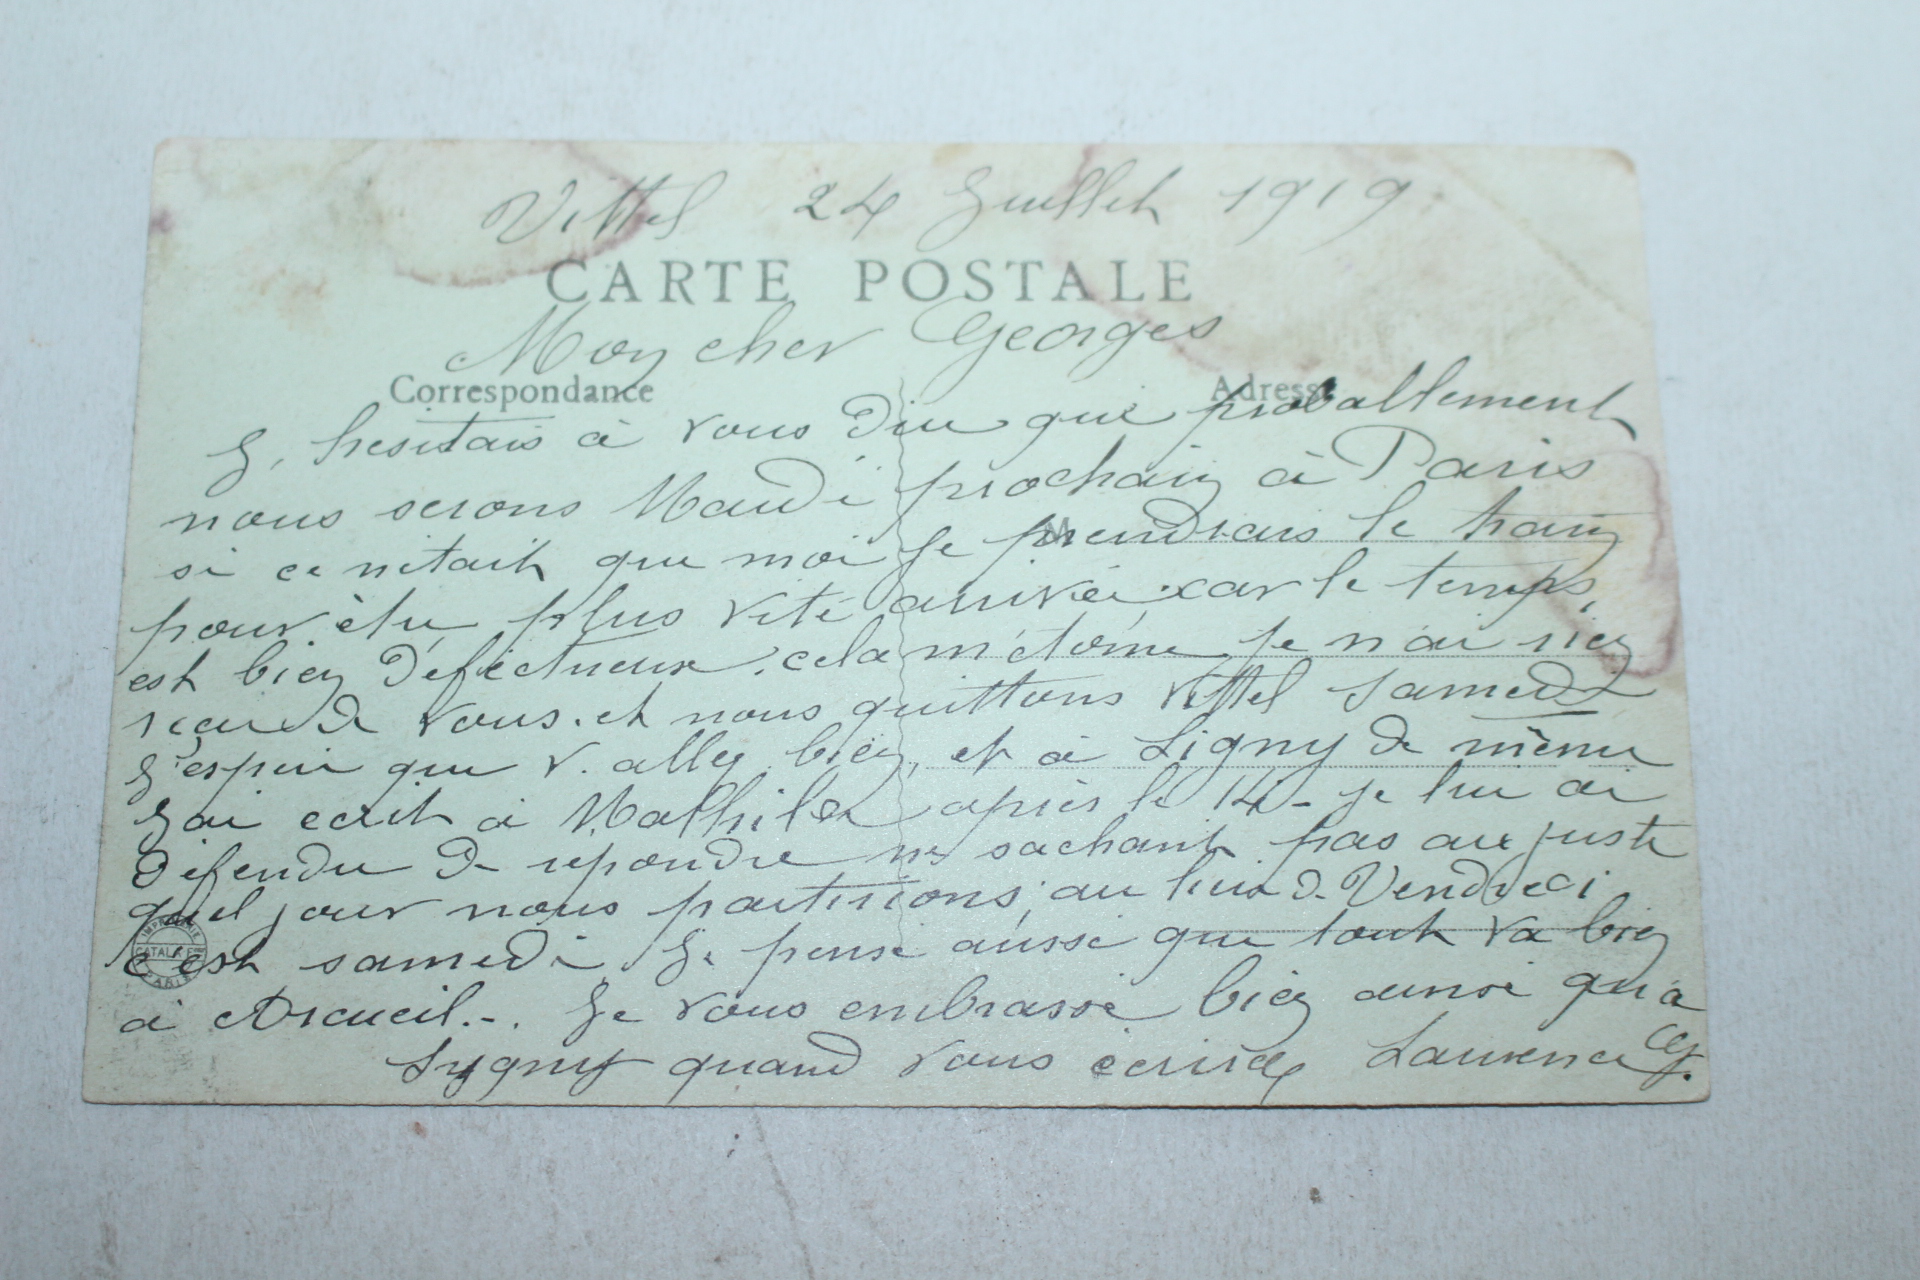 Vittel 24 Juillet 1919
CARTE POSTALE
Mon cher Georges
Correspondance
Adresse
J, hesitais à vous dire que proballement
nous serons Mardi prochain à Paris
si ce nétait que moi je prendrais le train
pour être plus vite arrivée car le temps
est bien défectueux. cela m'étonne je n'ai rien
recu de vous. et nous quittons Vittel samedi
J'espère que v. allez bien, et à Ligny de même
J'ai ecrit à Mathilde après le 14 - je lui ai
défendu de repondre ne sachant pas au juste
quel jour nous partirions, au lieu de Vendredi
c'est samedi Je pense aussi que tout va bien
à Arcueil. - . Je vous embrasse bien ainsi qu'a
Lygny quand vous ecrirez Laurence
IMPRIMERIE
CATALA
PARIS
M